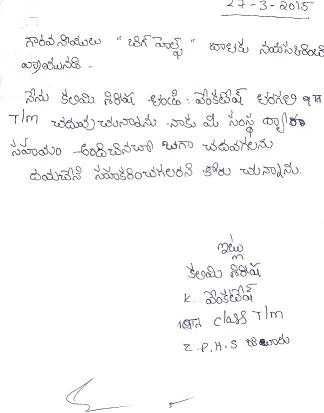 27-3-2015
గౌరవనీయులు "బిగ్ హెల్ప్" వాలకు నమస్కరించి
వ్రాయునది.
నేను కలమి శిరీష తండ్రి: వెంకటేష్ తరగతి 9వ
T/m చదువు చున్నాను. నాకు మీ సంస్థ ద్వారా
సహాయం అందించినచో బాగా చదువగలను
దయచేసి సహకరించగలరని కోరు చున్నాను.
ఇట్లు
కలమి శిరీష
K. వెంకటేష్
class T/m
Z.P.H.S